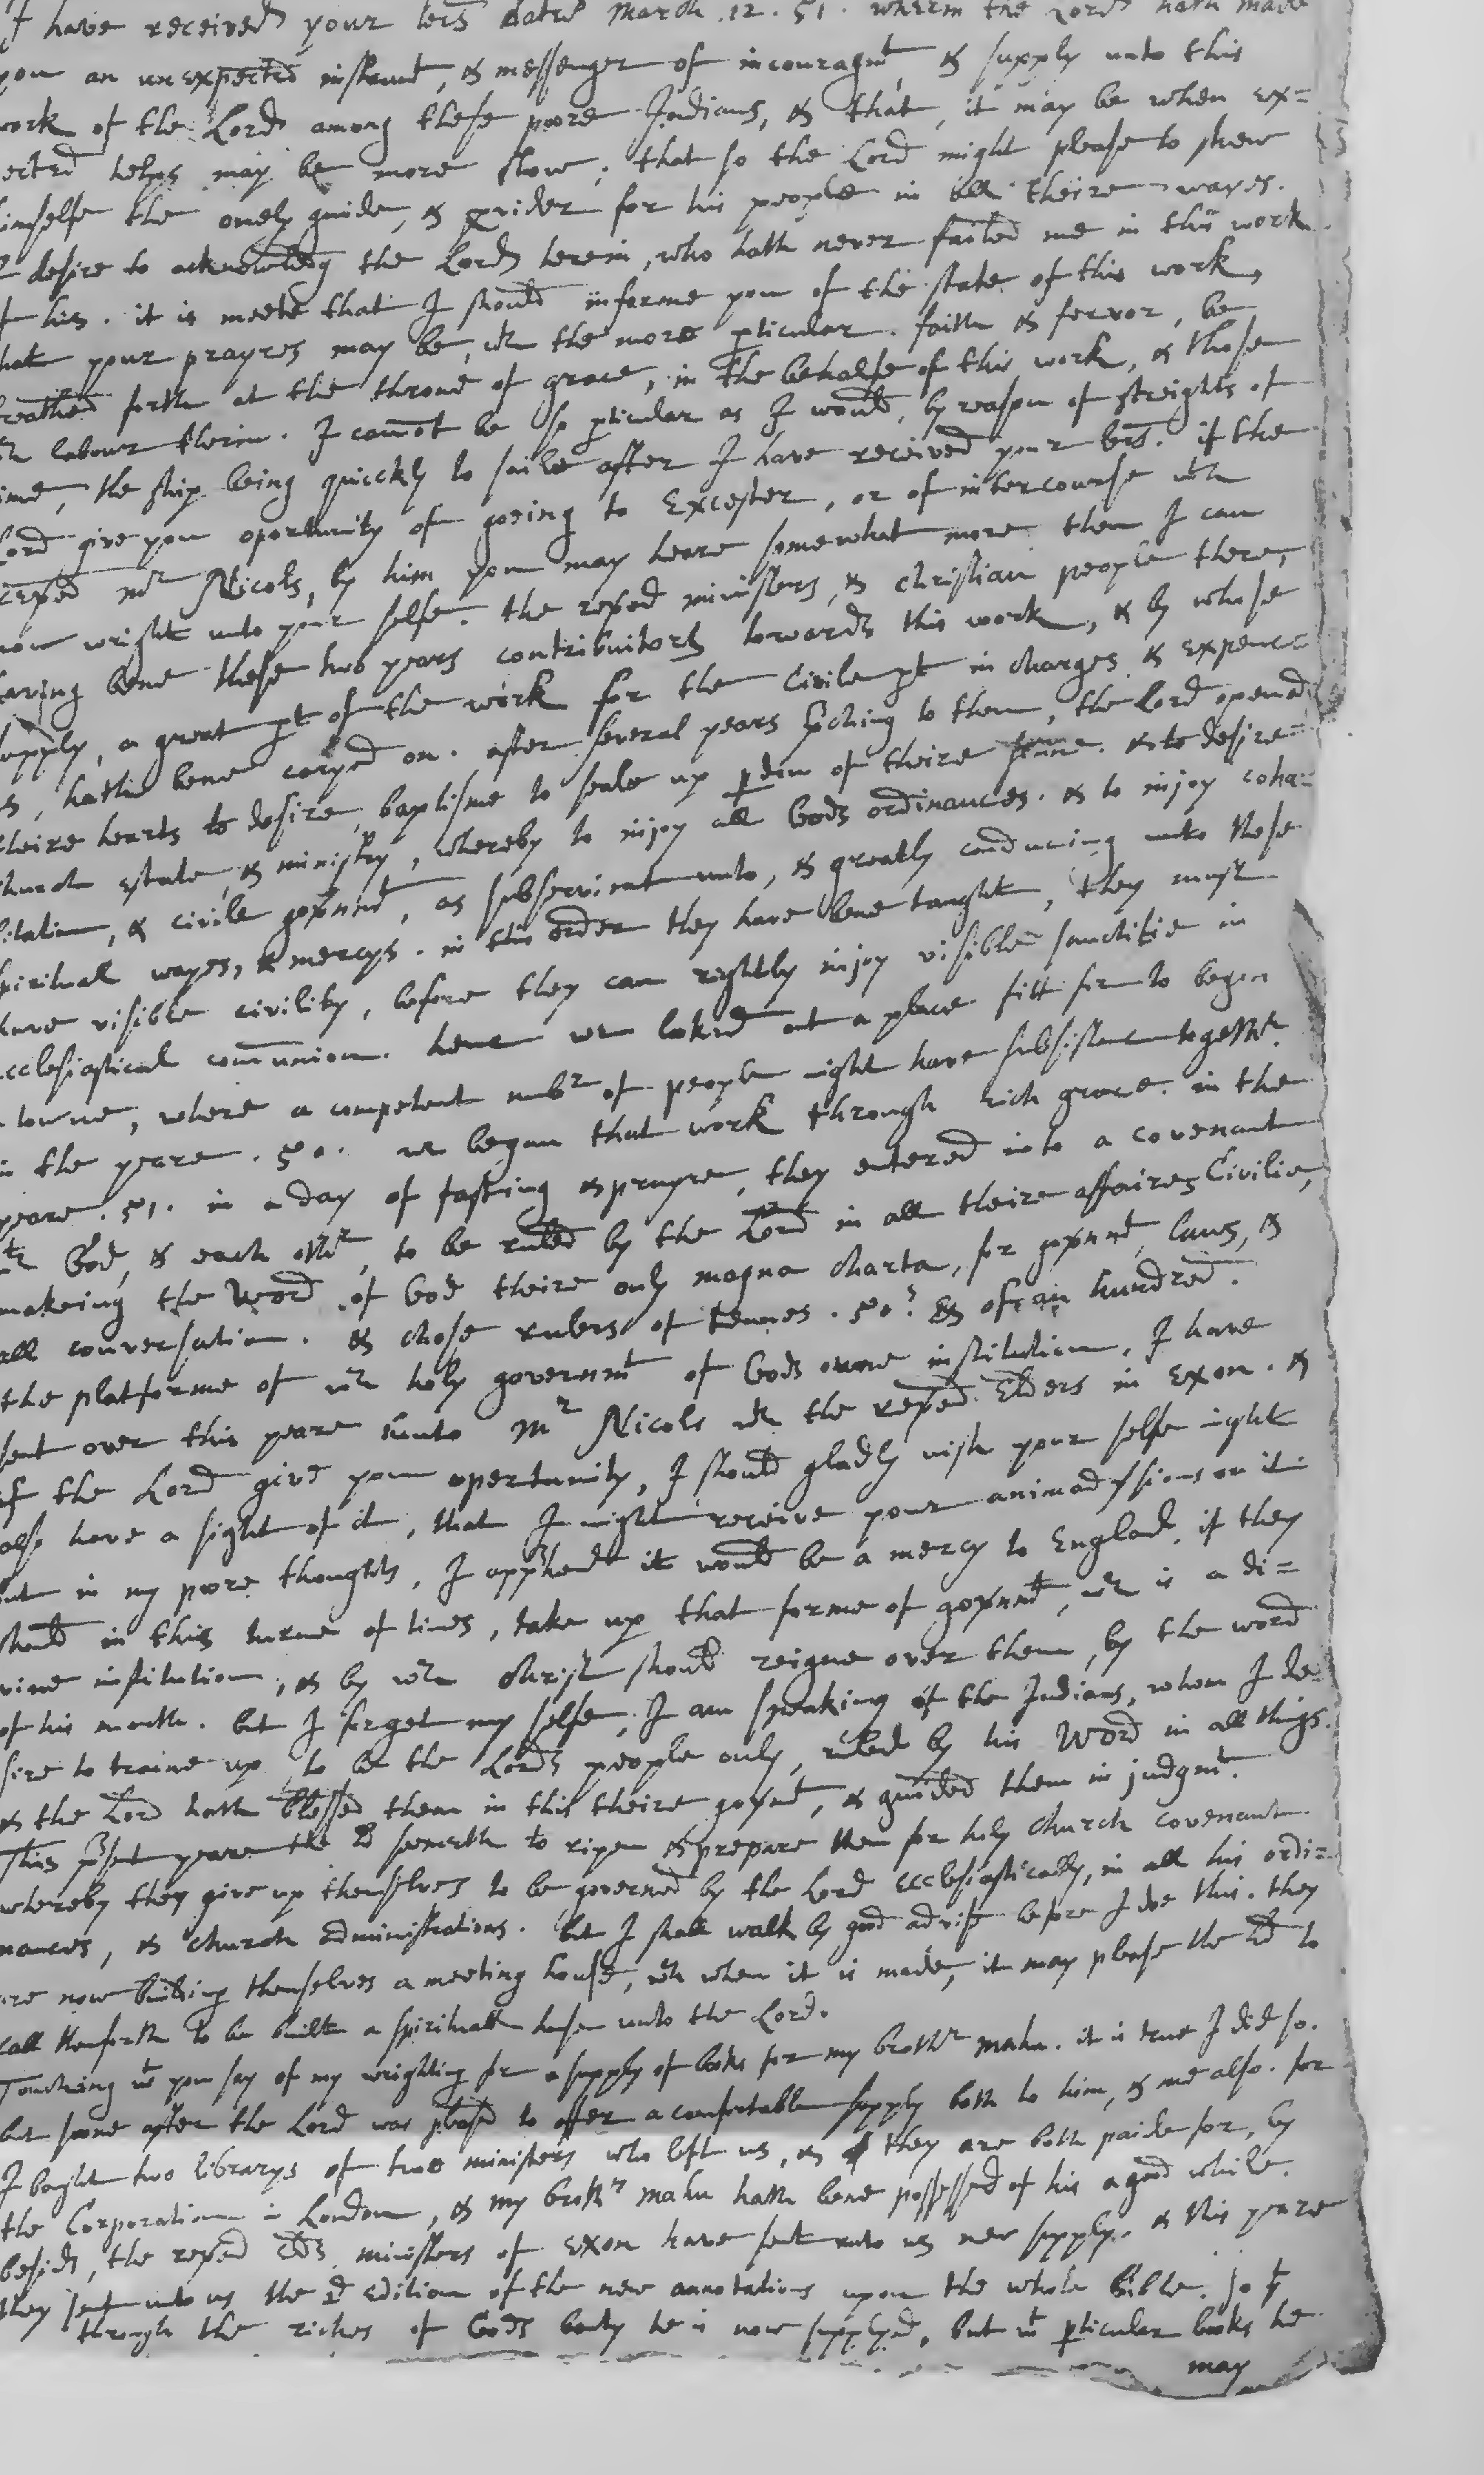 I have received your lers dated march .12. 51. wherin the Lord hath made
you an unexpected instrumt, & messenger of incouragmt, & supply unto this
work of the Lord among these poore Indians, & that, it may be when ex=
ected helps may be more slow; that so the Lord might please to shew
imselfe the onely guide, & pvider for his people in all theire wayes.
I desire to acknowledg the Lord herein, who hath never failed me in this work
of his. it is meete that I should informe you of the state of this work,
hat your prayres may be, wth the more pticular faith & fervor, be
reathed forth at the throne of grace, in the behalfe of this work, & those
labour therin. I cannot be so pticular as I would, by reason of streights of
ime, the ship being quickly to saile after I have received your lrs. if the
Lord give you oportunity of going to Excester, or of intercourse wth
revend mr Nicols, by him you may heare somewhat more then I can
now wright unto your selfe. the revend ministers, & christian people there,
having bene these two years contributors towards this work, & by whose
supply, a great pt of the work for the civile pt in charges & expenc
es, hath bene caryed on. after severall years pching to them, the Lord opened
theire hearts to desire baptisme to seale up pdon of theire sinne. & to desire
church estate, & ministry, whereby to injoy all Gods ordinances. & to injoy coha=
bitation, & civile govnmt, as subservient unto, & greatly conducing unto those
spiritual wayes, & mercys. in this order they have bene taught, they must
have visible civility, before they can rightly injoy visible sanctitie in
ecclesiastical communion. hence we looked out a place fitt for to begin
a towne, where a competent numbr of people might have subsistence togethr.
in the yeare .50. we began that work through rich grace. in the
yeare .51. in a day of fasting & prayre, they entered into a covenant
wth God, & each othr, to be ruled by the Lord in all theire affaires Civilie,
makeing the Word of God theire only magna charta, for govnmt, laws, &
all conversation. & chose rulers of tennes. 50s & of an hundred.
the platforme of wch holy governmt of Gods owne institution, I have
sent over this yeare unto mr Nicols wth the revend Elders in Exon. &
if the Lord give you opertunity, I should gladly wish your selfe might
also have a sight of it, that I might receive your animadvsions on it.
but in my poore thoughts, I apphend it would be a mercy to England, if they
should in this turne of times, take up that forme of govnmt, wch is a di=
vine institution, & by wch christ should reigne over them, by the word
of his mouth. but I forget my selfe, I am speaking of the Indians, whom I de
sire to traine up, to be the Lords people only, ruled by his Word in all things.
& the Lord hath blessed them in this theire govmt, & guided them in judgmt.
This psent yeare the Ld seemeth to ripen & prepare them for holy church covenant
whereby they give up themselves to be governed by the Lord ecclesiastically, in all his ordi=
nances, & church administrations. but I shall walk by good advise before I doe this. they
are now building themselves a meeting house, wch when it is made, it may please the Ld to
call them forth to be built a spirituall house unto the Lord.
Touching wt you say of my wrighting for a supply of books for my brothr mahu. it is true I did so.
but soone after the Lord was pleased to offer a comfortable supply both to him, & me also. for
I bought two librarys of two ministers who left us, & they are both paide for, by
the Corporation in London, & my brothr mahu hath bene possessed of his a good while.
besids, the revend ministers of Exon have sent unto us new supply. & this yeare
they sent unto us the 2d edition of the new annotations upon the whole Bible. so yt
through the riches of Gods bounty he is now supplyed, but wt pticular books he
may